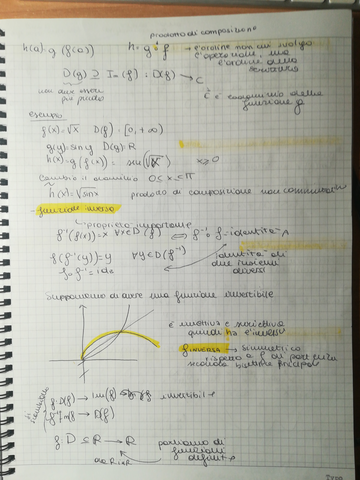 prodotto di composizione
h(x)= g(f(x))    h = g∘f → l'ordine non mi svolgo
l'operazione, ma
è l'ordine della
scrittura
D(g) ⊇ Im(f) : D(f) → C
non può essere
più piccolo
C è codominio della
funzione g
esempio
f(x)=√x   D(f)=[0,+∞)
g(y)=sin y   D(g)=R
h(x)=g(f(x))= sin(√x)   x≥0
Cambio il dominio 0≤x≤π
h̃(x)=√sinx   prodotto di composizione non commutativo
funzione inversa
↳ proprietà importante
f⁻¹(f(x))=x ∀x∈D(f) ⇔ f⁻¹∘f=identità
f(f⁻¹(y))=y   ∀y∈D(f⁻¹)
f∘f⁻¹=id
identità di
due insiemi
diversi
Supponiamo di avere una funzione invertibile
è iniettiva e suriettiva
quindi ha l'inversa
f inversa → simmetrico
rispetto a f
bisettrice principale
f: D(f) → Im(f) invertibile
f⁻¹: Im f → D(f)
f: D ⊆ R → R   parliamo di
funzioni
definite